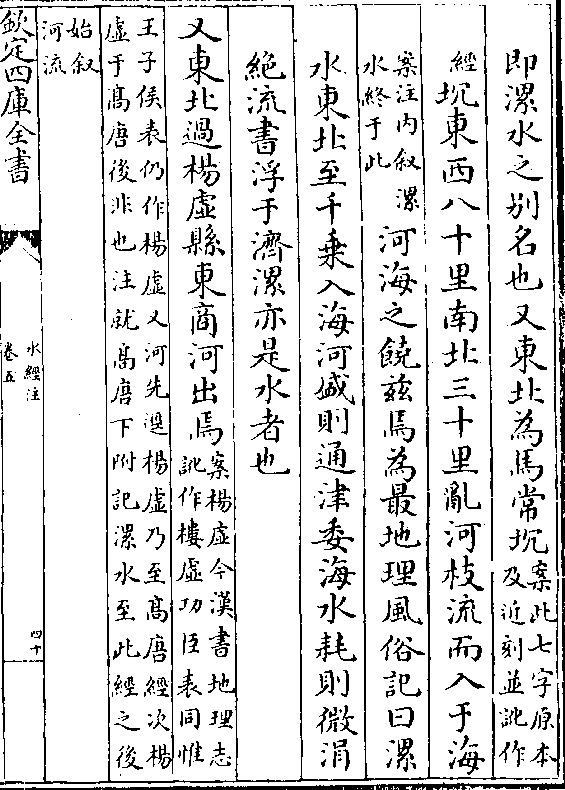 即漯水之别名也又東北為馬常坈案此七字原本及近刻並訛作
經坈東西八十里南北三十里亂河枝流而入于海
案注内叙漯水終于此河海之饒兹焉為最地理風俗記曰漯
水東北至千乗入海河盛則通津委海水耗則微涓
絶流書浮于濟漯亦是水者也
又東北過楊虚縣東商河出焉案楊虚今漢書地理志訛作樓虚功臣表同惟
王子侯表仍作楊虚又河先逕楊虚乃至髙唐經次楊
虚于髙唐後非也注就髙唐下附記漯水至此經之後
始叙河流
欽定四庫全書
水經注
卷五
四十